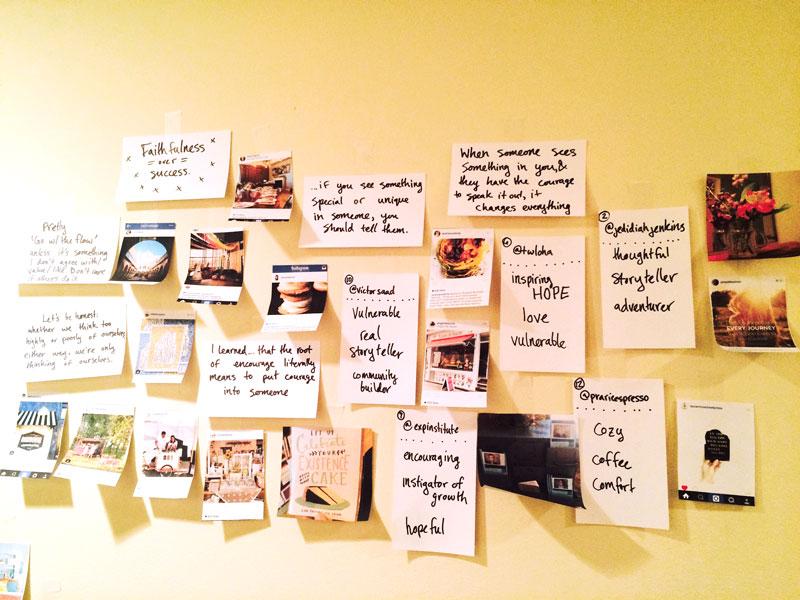 Faithfulness
= over =
success.
...if you see something
special or unique
in someone, you
should tell them.
When someone sees
something in you, &
they have the courage
to speak it out, it
changes everything
Pretty
"Go w/ the flow"
unless it's something
I don't agree with/
value/like. Don't care
if others do it
Let's be honest:
whether we think too
highly or poorly of ourselves
either way, we're only
thinking of ourselves.
I learned... that the root
of encourage literally
means to put courage
into someone
10
@victorsaad
Vulnerable
real
Storyteller
community
builder
@twloha
inspiring
HOPE
love
vulnerable
2
@jedidiahjenkins
thoughtful
Storyteller
adventurer
@expinstitute
encouraging
instigator of
growth
hopeful
12
@prairiespresso
Cozy
Coffee
Comfort
Instagram
Celebrate
EXISTENCE
CAKE
EVERY JOURNEY